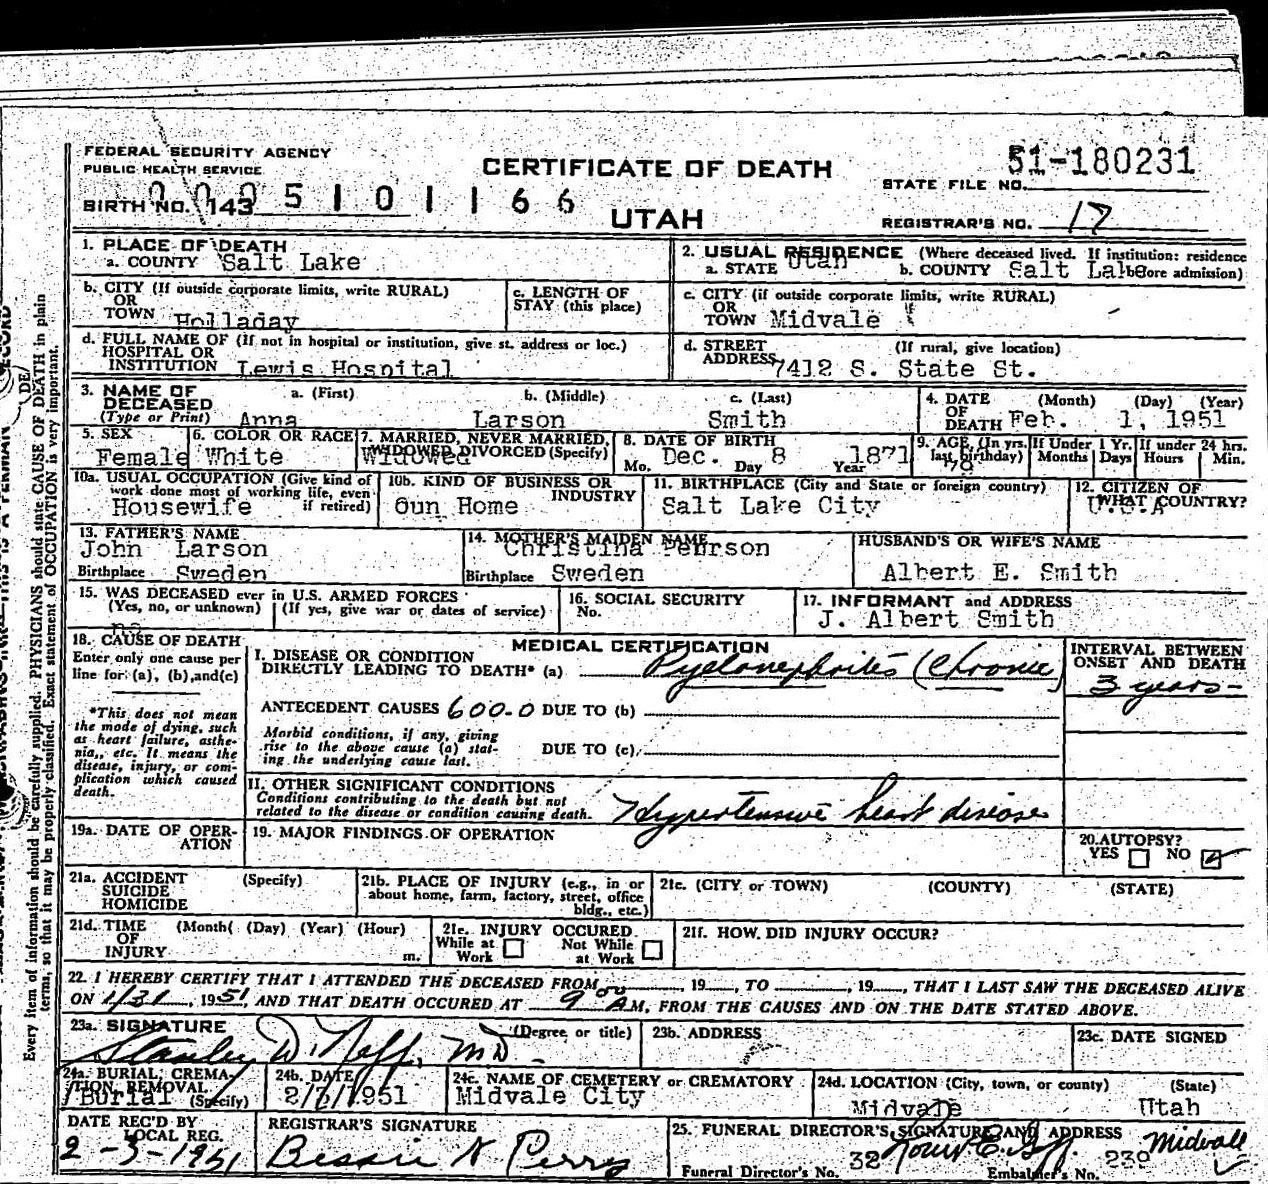 FEDERAL SECURITY AGENCY
PUBLIC HEALTH SERVICE
CERTIFICATE OF DEATH
51-180231
STATE FILE NO.
BIRTH NO. 143 5101166
UTAH
REGISTRAR'S NO. 17
1. PLACE OF DEATH
a. COUNTY Salt Lake
2. USUAL RESIDENCE (Where deceased lived. If institution: residence before admission)
a. STATE Utah b. COUNTY Salt Lake
b. CITY (If outside corporate limits, write RURAL)
OR
TOWN Holladay
c. LENGTH OF
STAY (this place)
c. CITY (if outside corporate limits, write RURAL)
OR
TOWN Midvale
d. FULL NAME OF (If not in hospital or institution, give st. address or loc.)
HOSPITAL OR
INSTITUTION Lewis Hospital
d. STREET (If rural, give location)
ADDRESS 7412 S. State St.
3. NAME OF DECEASED
(Type or Print)
a. (First) b. (Middle) c. (Last)
Anna Larson Smith
4. DATE OF DEATH (Month) (Day) (Year)
Feb. 1, 1951
5. SEX
Female
6. COLOR OR RACE
White
7. MARRIED, NEVER MARRIED,
WIDOWED, DIVORCED (Specify)
Widowed
8. DATE OF BIRTH
Mo. Dec. Day 8 Year 1871
9. AGE (In yrs. last birthday)
78
If Under 1 Yr.
Months Days
If under 24 hrs.
Hours Min.
10a. USUAL OCCUPATION (Give kind of
work done most of working life, even
if retired)
Housewife
10b. KIND OF BUSINESS OR
INDUSTRY
Oun Home
11. BIRTHPLACE (City and State or foreign country)
Salt Lake City
12. CITIZEN OF
WHAT COUNTRY?
U.S.A
13. FATHER'S NAME
John Larson
Birthplace Sweden
14. MOTHER'S MAIDEN NAME
Christina Pehrson
Birthplace Sweden
HUSBAND'S OR WIFE'S NAME
Albert E. Smith
15. WAS DECEASED ever in U.S. ARMED FORCES
(Yes, no, or unknown) (If yes, give war or dates of service)
no
16. SOCIAL SECURITY
No.
17. INFORMANT and ADDRESS
J. Albert Smith
18. CAUSE OF DEATH
Enter only one cause per
line for (a), (b), and (c)
*This does not mean
the mode of dying, such
as heart failure, asthe-
nia, etc. It means the
disease, injury, or com-
plication which caused
death.
MEDICAL CERTIFICATION
I. DISEASE OR CONDITION
DIRECTLY LEADING TO DEATH* (a) Pyelonephritis (Chronic)
INTERVAL BETWEEN
ONSET AND DEATH
3 years-
ANTECEDENT CAUSES 600.0 DUE TO (b)
Morbid conditions, if any, giving
rise to the above cause (a) stat-
ing the underlying cause last.
DUE TO (c)
II. OTHER SIGNIFICANT CONDITIONS
Conditions contributing to the death but not
related to the disease or condition causing death.
Hypertensive heart disease
19a. DATE OF OPER-
ATION
19. MAJOR FINDINGS OF OPERATION
20. AUTOPSY?
YES NO
21a. ACCIDENT (Specify)
SUICIDE
HOMICIDE
21b. PLACE OF INJURY (e.g., in or
about home, farm, factory, street, office
bldg., etc.)
21c. (CITY or TOWN) (COUNTY) (STATE)
21d. TIME (Month( (Day) (Year) (Hour)
OF
INJURY m.
21e. INJURY OCCURED
While at Work Not While at Work
21f. HOW DID INJURY OCCUR?
22. I HEREBY CERTIFY THAT I ATTENDED THE DECEASED FROM , 19 , TO , 19 , THAT I LAST SAW THE DECEASED ALIVE
ON 1/31, 1951, AND THAT DEATH OCCURED AT 9 00 AM, FROM THE CAUSES AND ON THE DATE STATED ABOVE.
23a. SIGNATURE (Degree or title)
Stanley D. Neff, MD
23b. ADDRESS
23c. DATE SIGNED
24a. BURIAL, CREMA-
TION, REMOVAL
Burial (Specify)
24b. DATE
1951
24c. NAME OF CEMETERY or CREMATORY
Midvale City
24d. LOCATION (City, town, or county) (State)
Midvale Utah
DATE REC'D BY
LOCAL REG.
2-3-1951
REGISTRAR'S SIGNATURE
Bessie N Perry
25. FUNERAL DIRECTOR'S SIGNATURE AND ADDRESS
Midvale
Funeral Director's No. 32 Embalmer's No. 239
Every item of information should be carefully supplied. PHYSICIANS should state CAUSE OF DEATH in plain
terms, so that it may be properly classified. Exact statement of OCCUPATION is very important.